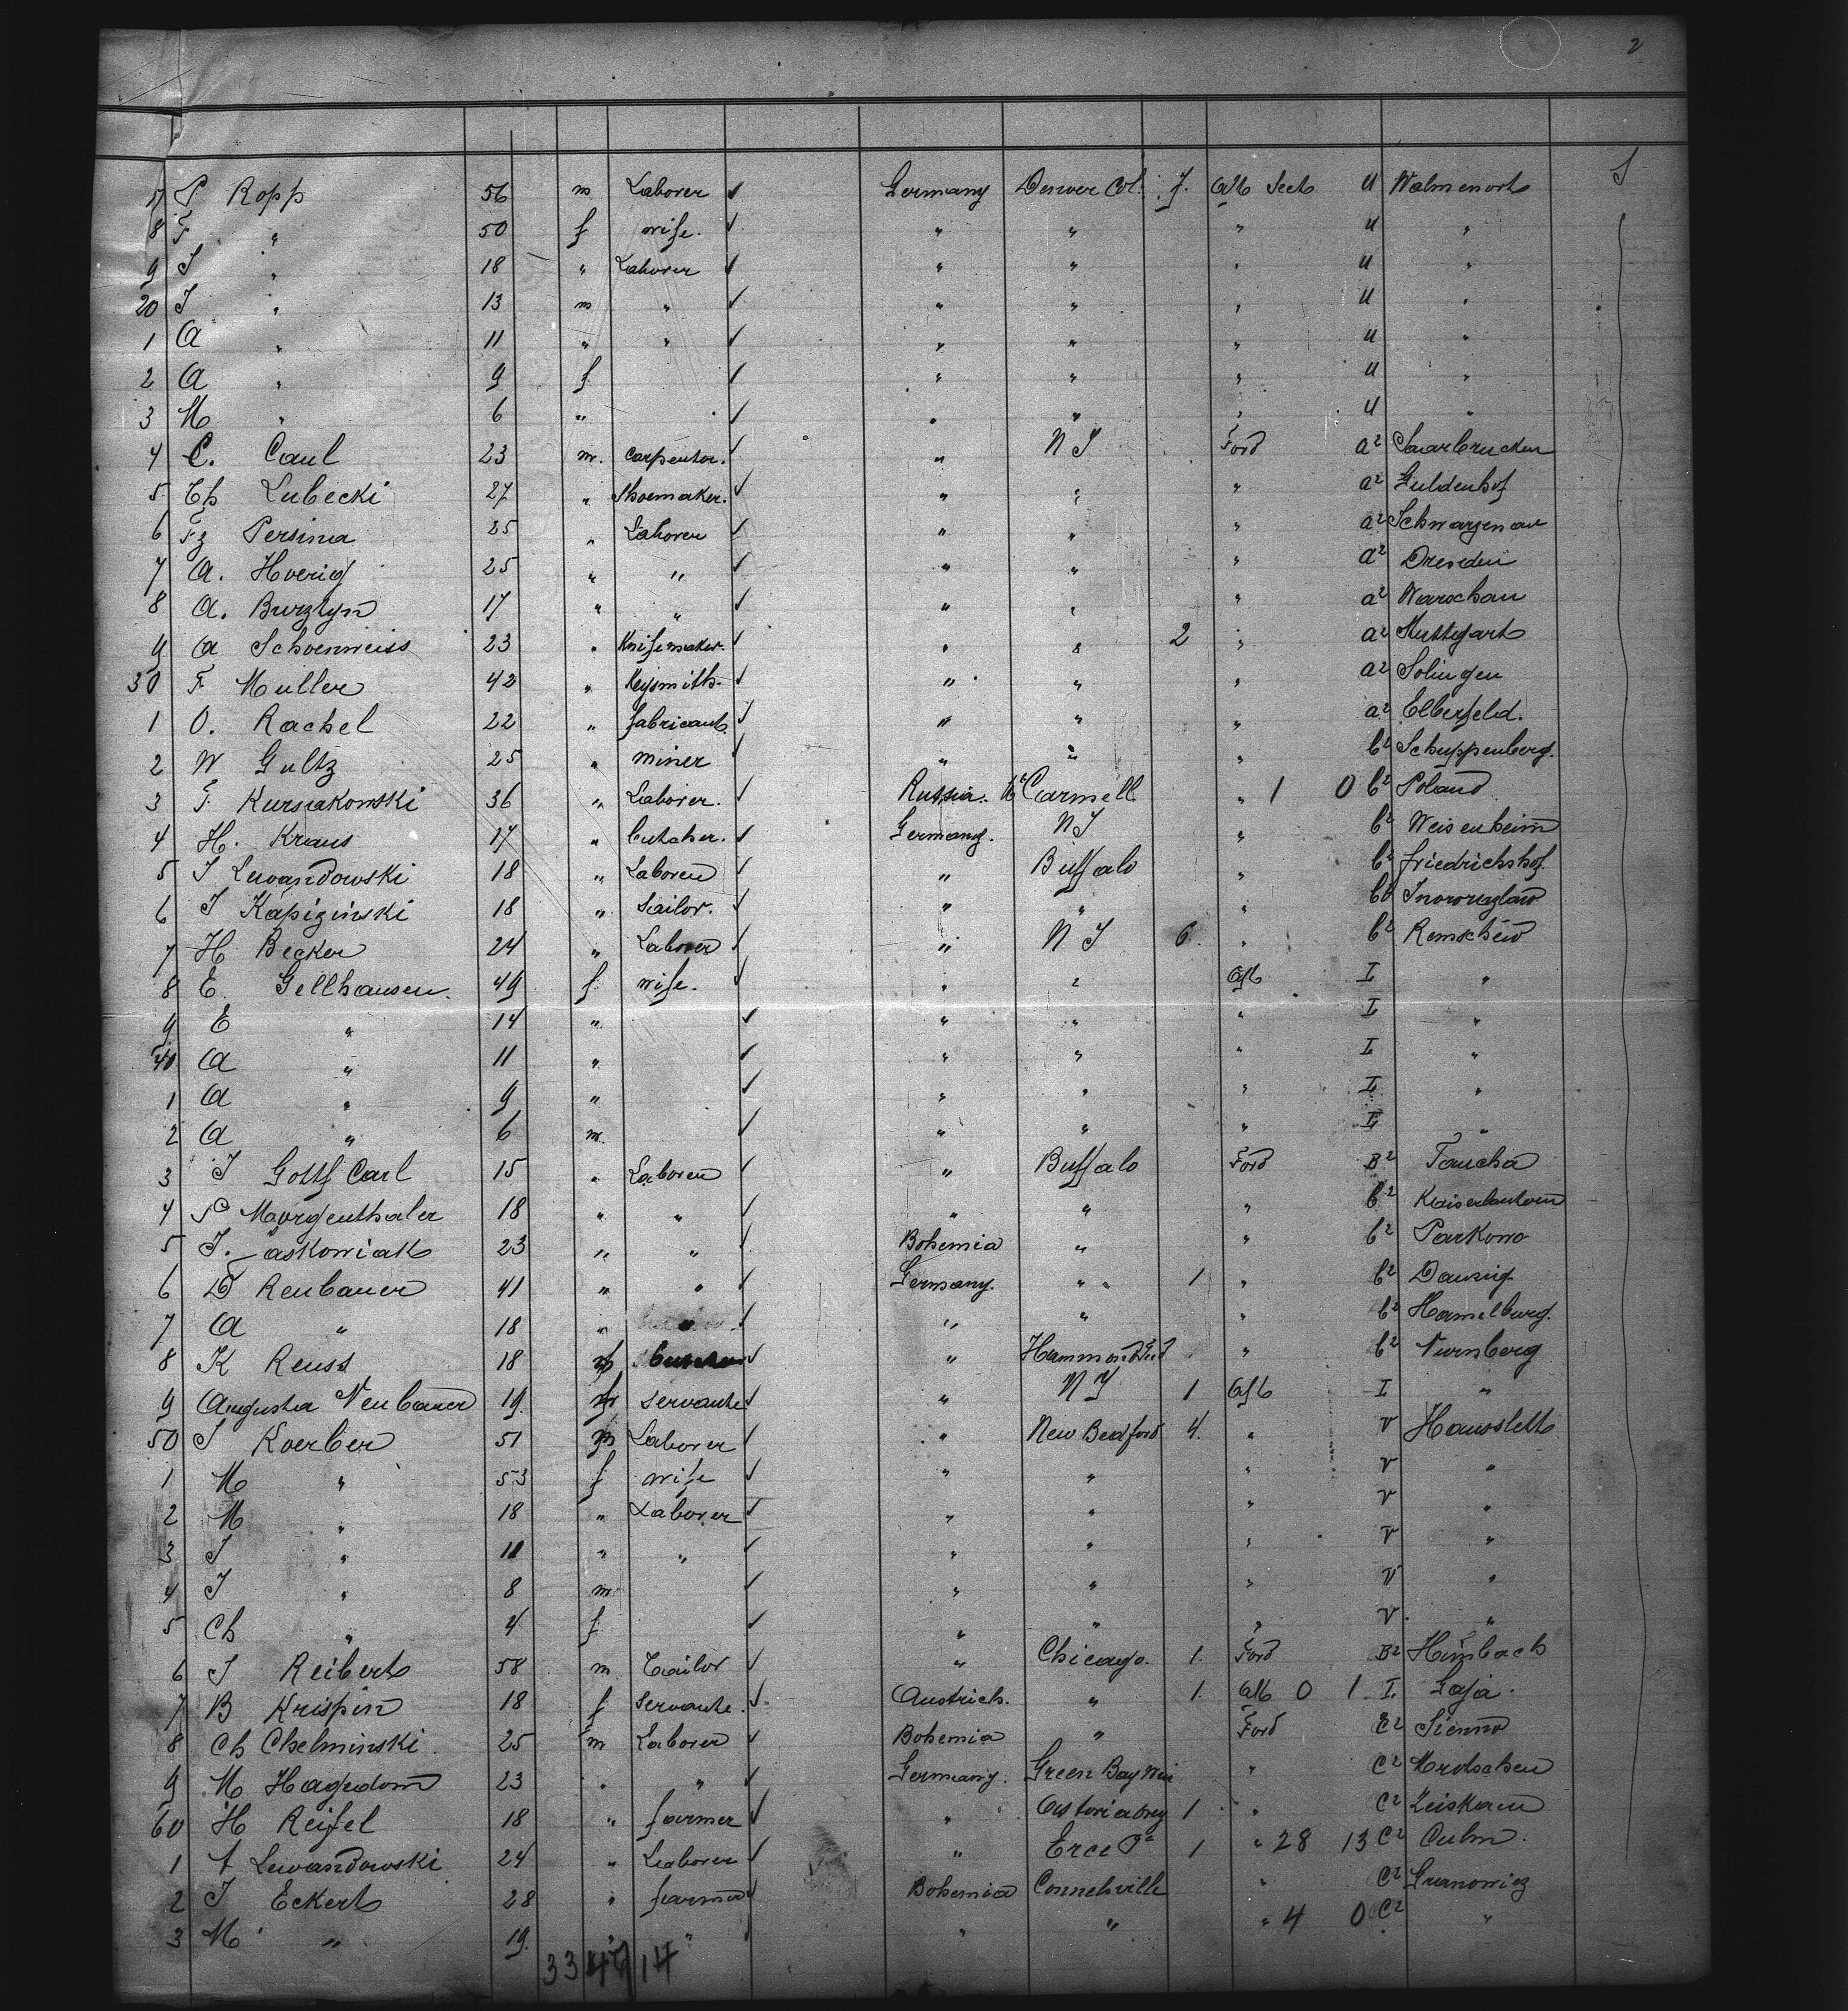 2
S
17 P. Ropp 56 m Laborer ✓ Germany Denver Col. 7. Aft Sect U Walmenort
8 F " 50 f wife. ✓ " " " U "
9 J " 18 " Laborer ✓ " " " U "
20 J " 13 m " ✓ " " " U "
1 A " 11 " " ✓ " " " U "
2 A " 9 f ✓ " " " U "
3 M " 6 " ✓ " " " U "
4 C. Caul 23 m. Carpenter. ✓ " N Y Ford a2 Saarbrucken
5 Th Lubecki 27 " Shoemaker. ✓ " " " a2 Guldenhof
6 Fz Persina 25 " Laborer ✓ " " " a2 Schwarzenau
7 A. Hverig 25 " " ✓ " " " a2 Dresden
8 A. Burztyn 17 " " ✓ " " " a2 Warschau
9 A Schoenweiss 23 " Knifemaker. ✓ " " 2 " a2 Stuttgart
30 F. Muller 42 " Keysmith. ✓ " " " a2 Solingen
1 O. Rachel 22 " fabricant. ✓ " " " a2 Elberfeld.
2 W Gultz 25 " miner ✓ " " " b2 Schuppenberg.
3 F. Kursakowski 36 " Laborer. ✓ Russia. Mt Carmell " 1 0 b2 Poland
4 H. Kraus 17 " butcher. ✓ Germany. N Y " b2 Weisenheim
5 J Lewandowski 18 " Laborer ✓ " Buffalo " b2 friedrichshof.
6 J Kapizinski 18 " Sailor. ✓ " " " b2
7 H Becker 24 " Laborer ✓ " N Y 6. " b2 Remscheid
8 E Gellhausen. 49 f wife. ✓ " " Aft I "
9 E " 14 " ✓ " " " I "
40 A " 11 " ✓ " " " I "
1 A " 9 " ✓ " " " I "
2 A " 6 m. ✓ " " " I "
3 J Gottf Carl 15 " Laborer ✓ " Buffalo Ford B2 Taucha
4 P Morgenthaler 18 " " ✓ " " " b2 Kaiserlautern
5 J. Jaskowiak 23 " " ✓ Bohemia " " b2 Parkowo
6 D Reubauer 41 " " ✓ Germany. " 1 " b2 Danzig
7 A " 18 " " ✓ " " " b2 Hamelburg.
8 K Reuss 18 m ✓ " Hammond Ind " b2 Nurnberg
9 Augusta Neubauer 19. f servante ✓ " N Y 1 Aft I "
50 J Koerber 51 m Laborer ✓ " New Bedford 4. " V Hausslett
1 M " 53 f wife ✓ " " " V "
2 M " 18 " Laborer ✓ " " " V "
3 J " 11 " " ✓ " " " V "
4 J " 8 m ✓ " " " V "
5 Ch " 4 f ✓ " " " V "
6 J Reibert 58 m Tailor ✓ " Chicago. 1. Ford B2 Himbach
7 B Krispin 18 f Servante. ✓ Austrich. " 1. Aft 0 1 I Gaja.
8 Ch Chelminski 25 m Laborer ✓ Bohemia " Ford C2 Sienno
9 M Hagedorn 23 " " ✓ Germany. Green Bay Wis " C2 Mrotschen
60 H Reifel 18 " farmer ✓ " Astoria Oreg 1 " C2 Zeiskam
1 A Lewandowski 24 " Laborer ✓ " Erce Pa 1 " 28 13 C2 Culm.
2 J Eckert 28 " farmer ✓ Bohemia Connelsville " C2 Granowicz
3 M " 19. " " ✓ " " " 4 0 C2 "
33 47 14